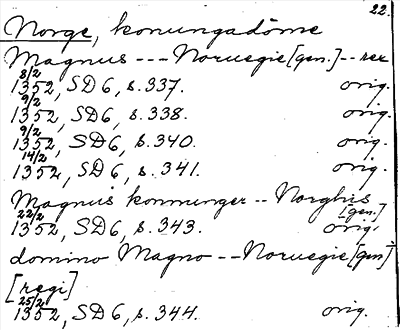 22.
Norge, konungadöme
Magnus --- Noruegie [gen.] -- rex
8/2
1352, SD6, s. 337. orig.
9/2
1352, SD6, s. 338. orig.
9/2
1352, SD6, s. 340. orig.
14/2
1352, SD6, s. 341. orig.
Magnus konnunger -- Norghis
[gen.]
22/2
1352, SD6, s. 343. orig.
domino Magno -- Noruegie [gen]
[regi]
25/2
1352, SD6, s. 344. orig.